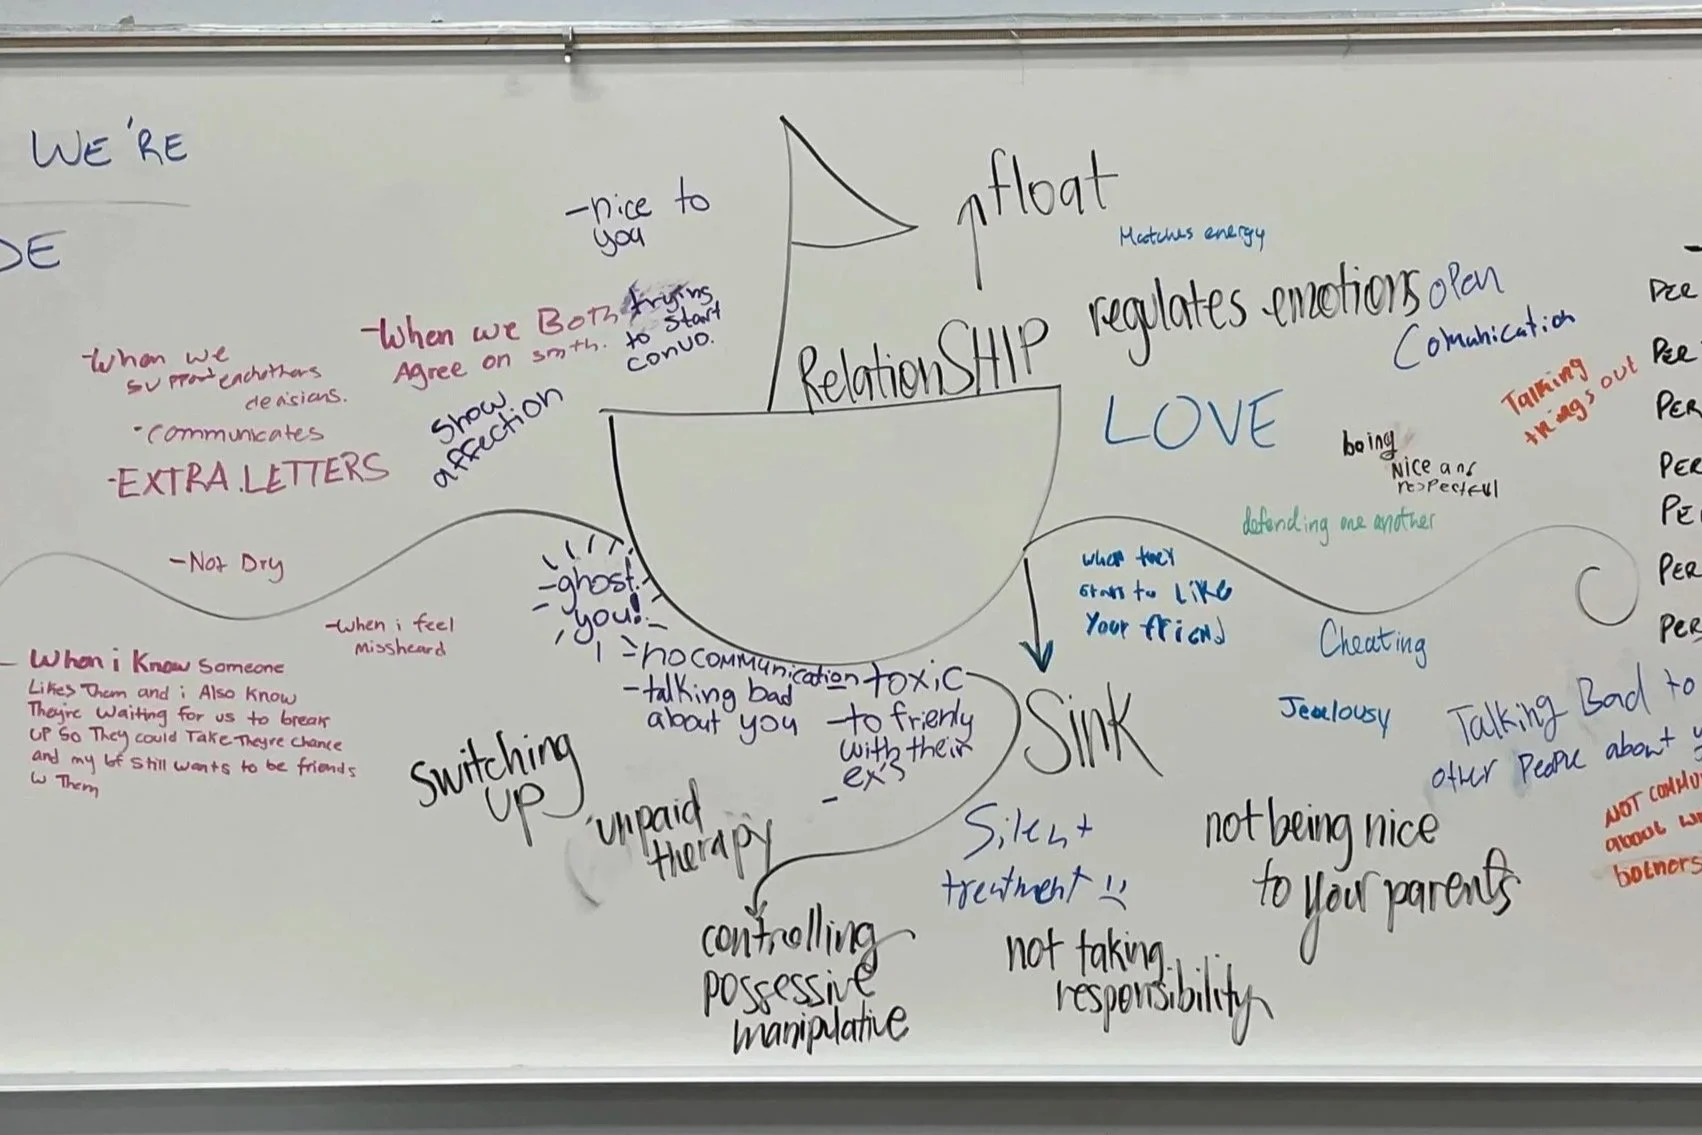 WE'RE
DE
-nice to
you
float
Matches energy
RelationSHIP
regulates emotions
open
Comunication
Talking
things out
LOVE
being
Nice and
respectful
defending one another
-When we Both
Agree on smth.
trying
to start
convo.
-When we
support eachothers
decisions.
·communicates
-EXTRA.LETTERS
show
affection
-Not Dry
-When i feel
missheard
- When i Know Someone
Likes Them and i Also Know
They're Waiting for us to break
UP So They could Take Theyre chance
and my bf still wants to be friends
w Them
-ghost
you!
-no communication
-talking bad
about you
toxic
-to frienly
with their
ex's
-
switching
up
unpaid
therapy
controlling
possessive
manipulative
Sink
when they
start to Like
Your friend
Cheating
Jealousy
Talking Bad to
other People about
NOT COMMU
about
bothers
Silent
treatment
not being nice
to your parents
not taking
responsibility
PER
PER
PER
PER
PE
PER
PER